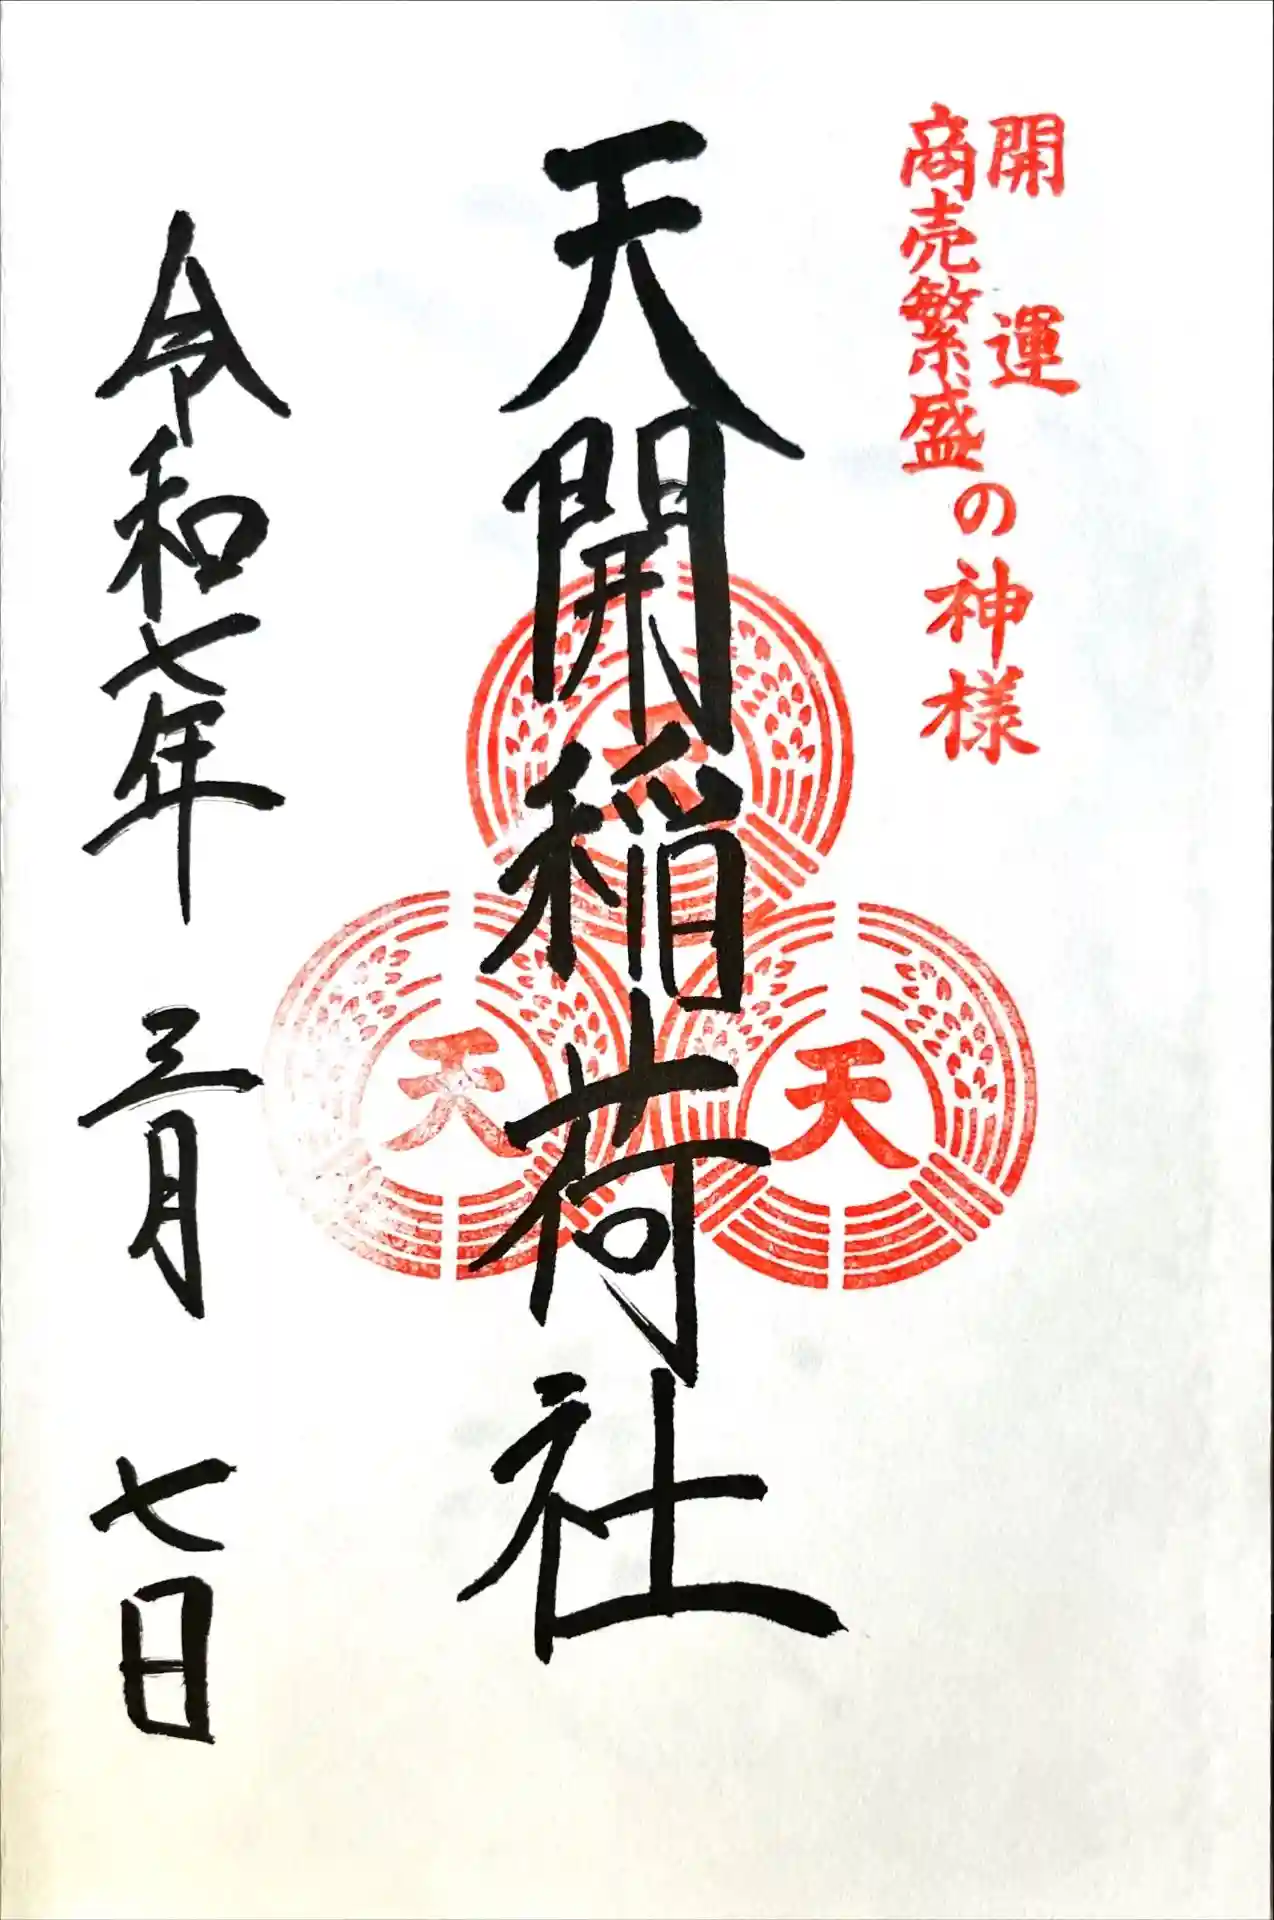 開運
商売繁盛
の神様
天開稲荷社
天
天
天
令和七年 三月 七日